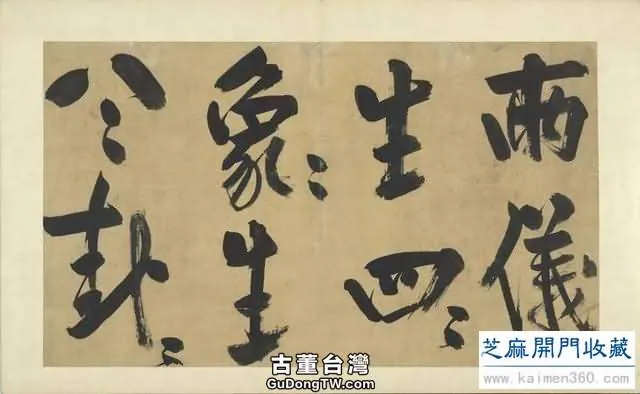 兩儀
生四〻
象〻生
八〻卦〻
古董台灣
GuDongTW.com
芝麻開門收藏
www.kaimen360.com